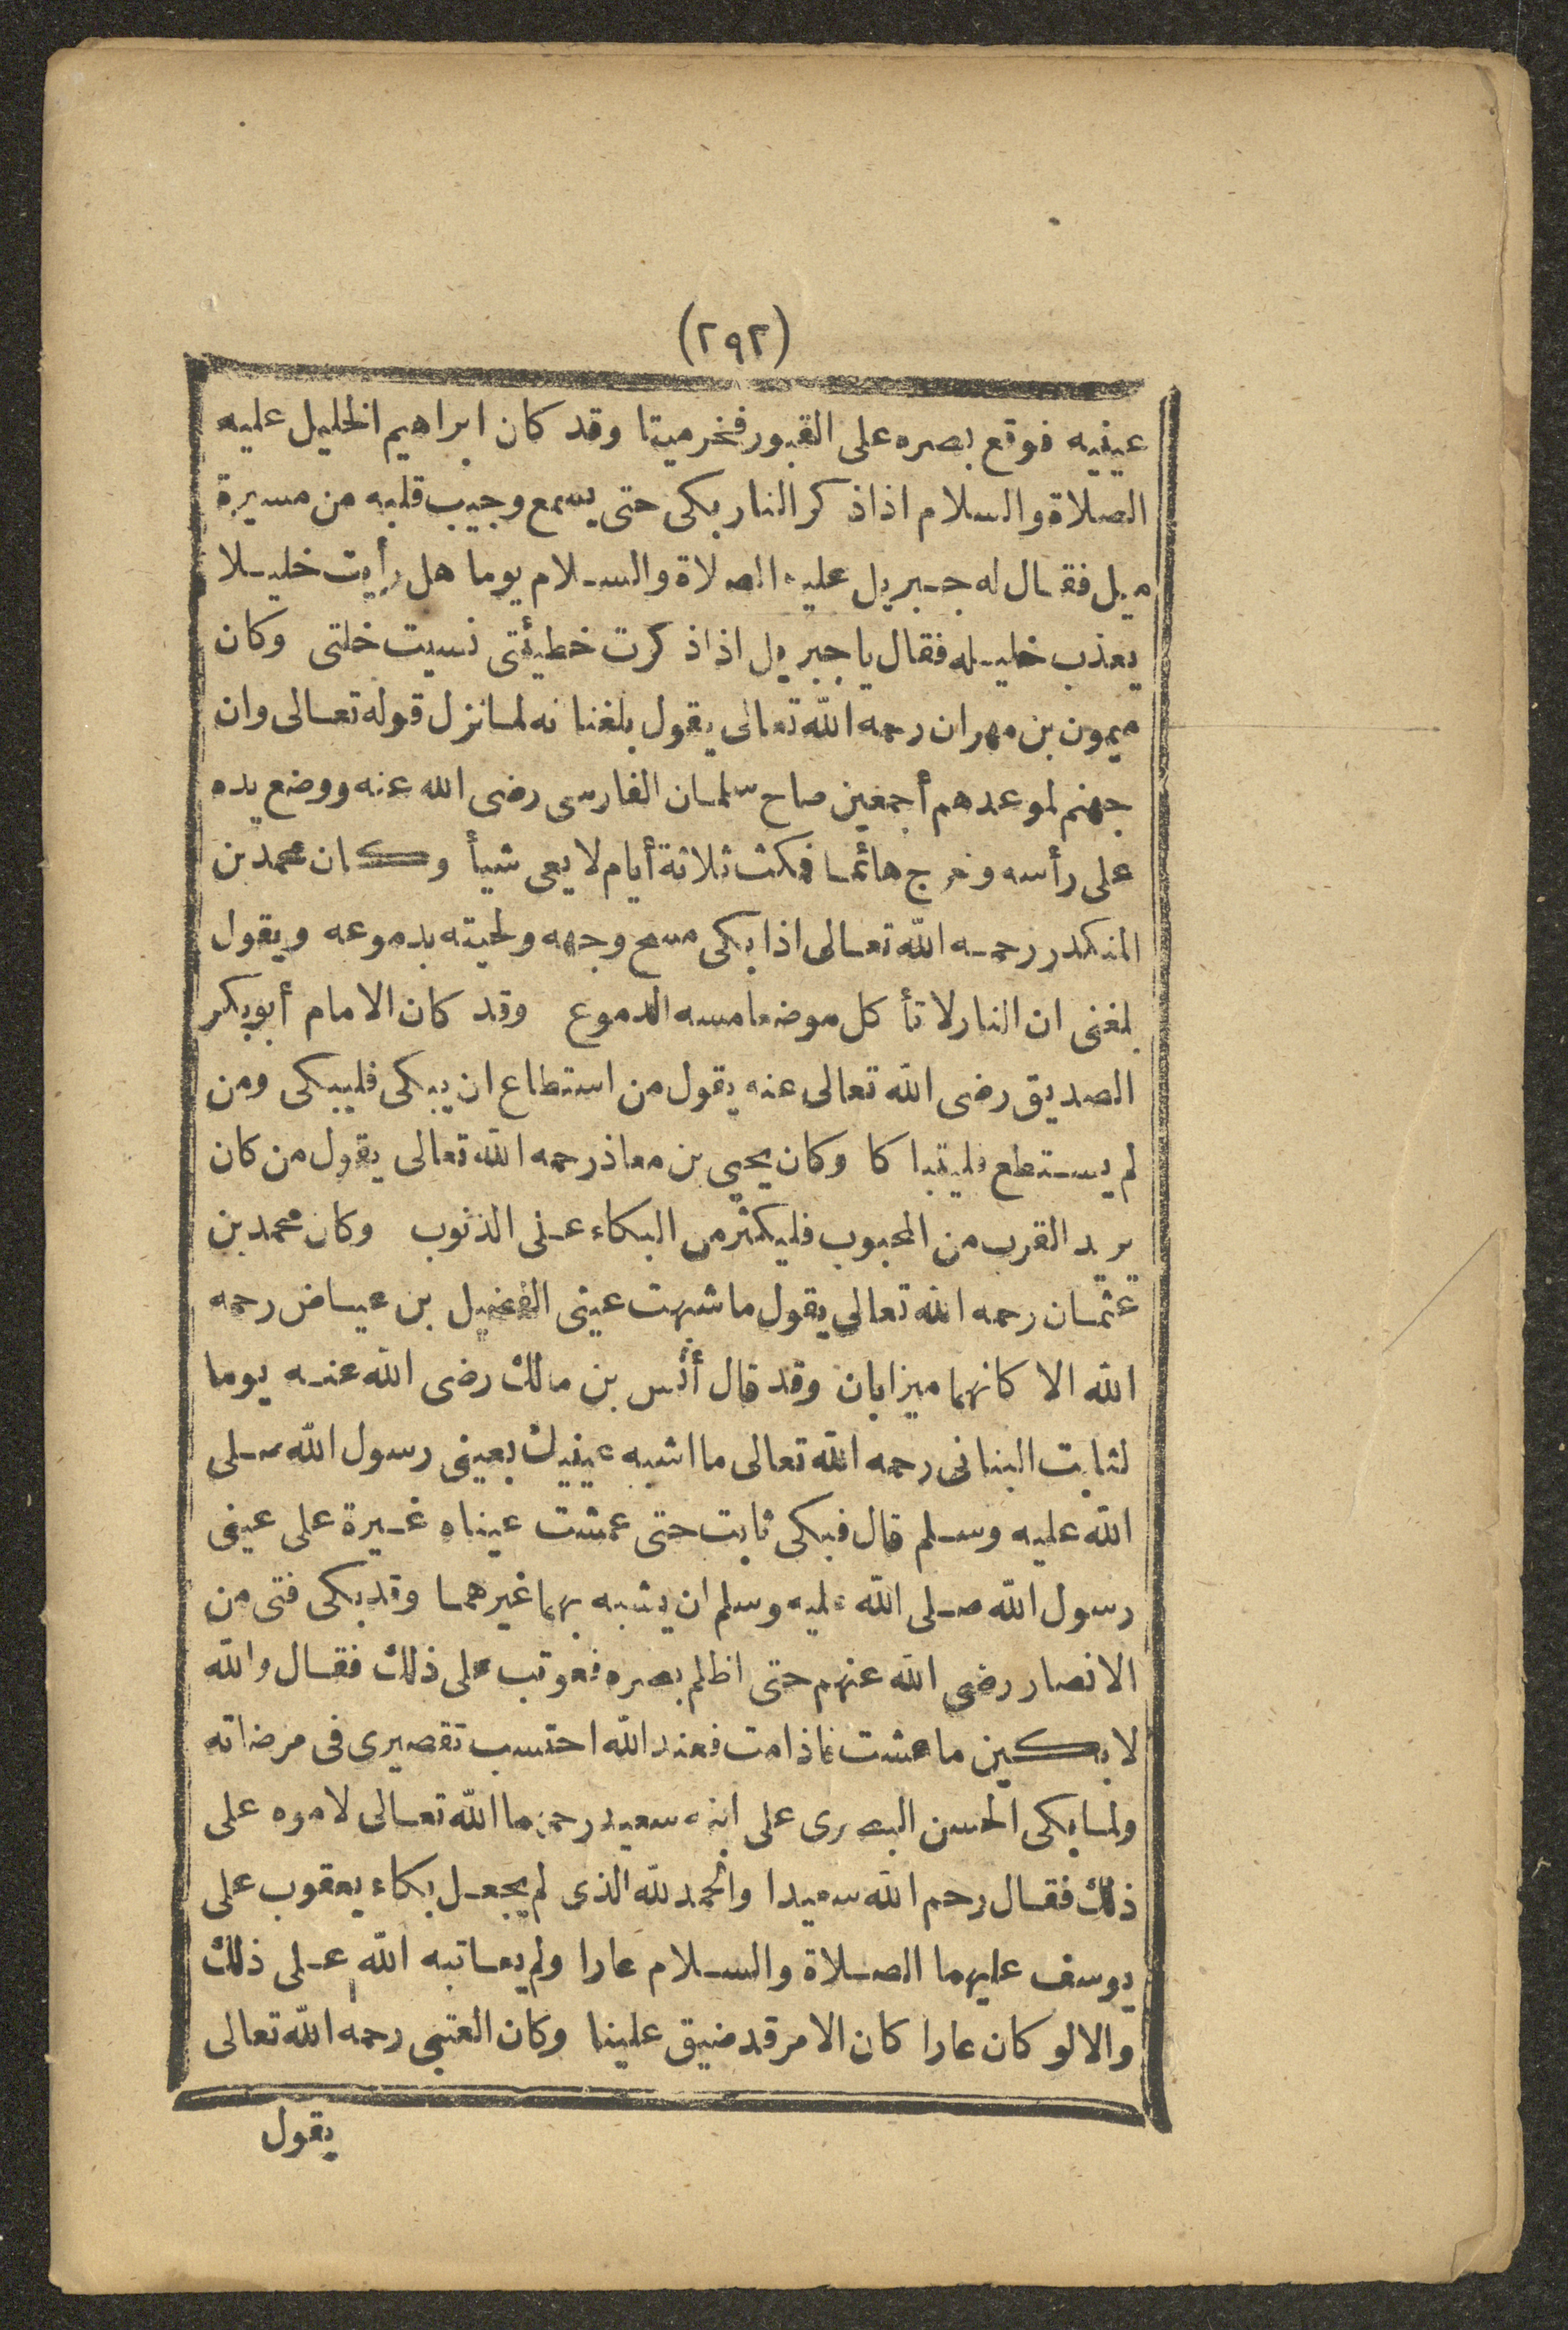 (٢٩٢)
عينيه فوقع بصره على القبور فخر ميتا وقد كان ابراهيم الخليل عليه
الصلاة والسلام اذا ذكر النار بكى حتى يسمع وجيب قلبه من مسيرة
ميل فقال له جبريل عليه الصلاة والسلام يوما هل رأيت خليلا
يعذب خليله فقال يا جبريل اذا ذكرت خطيئتى نسيت خلتى وكان
ميمون بن مهران رحمه الله تعالى يقول بلغنا نه لما نزل قوله تعالى وان
جهنم لموعدهم أجمعين صاح سلمان الفارسى رضى الله عنه ووضع يده
على رأسه وخرج هائما فمكث ثلاثة أيام لا يعى شيأ وكان محمد بن
المنكدر رحمه الله تعالى اذا بكى مسح وجهه ولحيته بدموعه ويقول
بلغنى ان النار لا تأكل موضعا مسه الدموع وقد كان الامام أبو بكر
الصديق رضى الله تعالى عنه يقول من استطاع ان يبكى فليبكى ومن
لم يستطع فليتباكا وكان يحيى بن معاذ رحمه الله تعالى يقول من كان
يريد القرب من المحبوب فليكثر من البكاء على الذنوب وكان محمد بن
عثمان رحمه الله تعالى يقول ما شبهت عينى الفضيل بن عياض رحمه
الله الا كانهما ميزابان وقد قال أنس بن مالك رضى الله عنه يوما
لثابت البنانى رحمه الله تعالى ما اشبه عينيك بعينى رسول الله صلى
الله عليه وسلم قال فبكى ثابت حتى عمشت عيناه غيرة على عينى
رسول الله صلى الله عليه وسلم ان يشبه بهما غيرهما وقد بكى فتى من
الانصار رضى الله عنهم حتى اظلم بصره فعوتب على ذلك فقال والله
لابكين ما عشت فاذا مت فعند الله احتسب تقصيرى فى مرضاته
ولما بكى الحسن البصرى على ابنه سعيد رحمهما الله تعالى لاموه على
ذلك فقال رحم الله سعيدا والحمد لله الذى لم يجعل بكاء يعقوب على
يوسف عليهما الصلاة والسلام عارا ولم يعاتبه الله على ذلك
والا لو كان عارا كان الامر قد ضيق علينا وكان العتبى رحمه الله تعالى
يقول